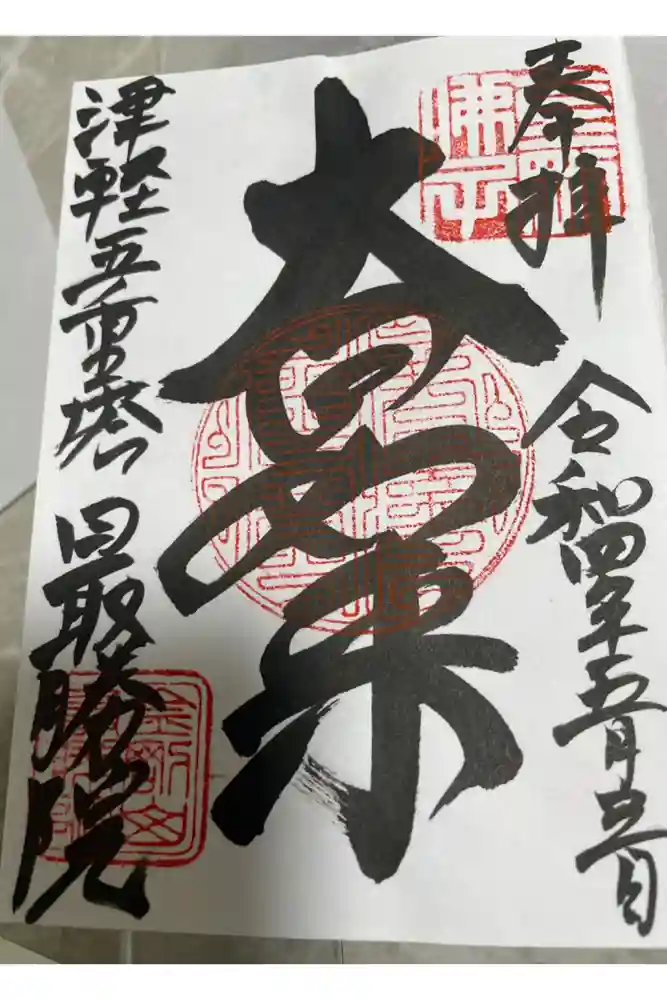 奉拝
令和四年五月五日
大日如来
津軽五重塔
最勝院
佛子